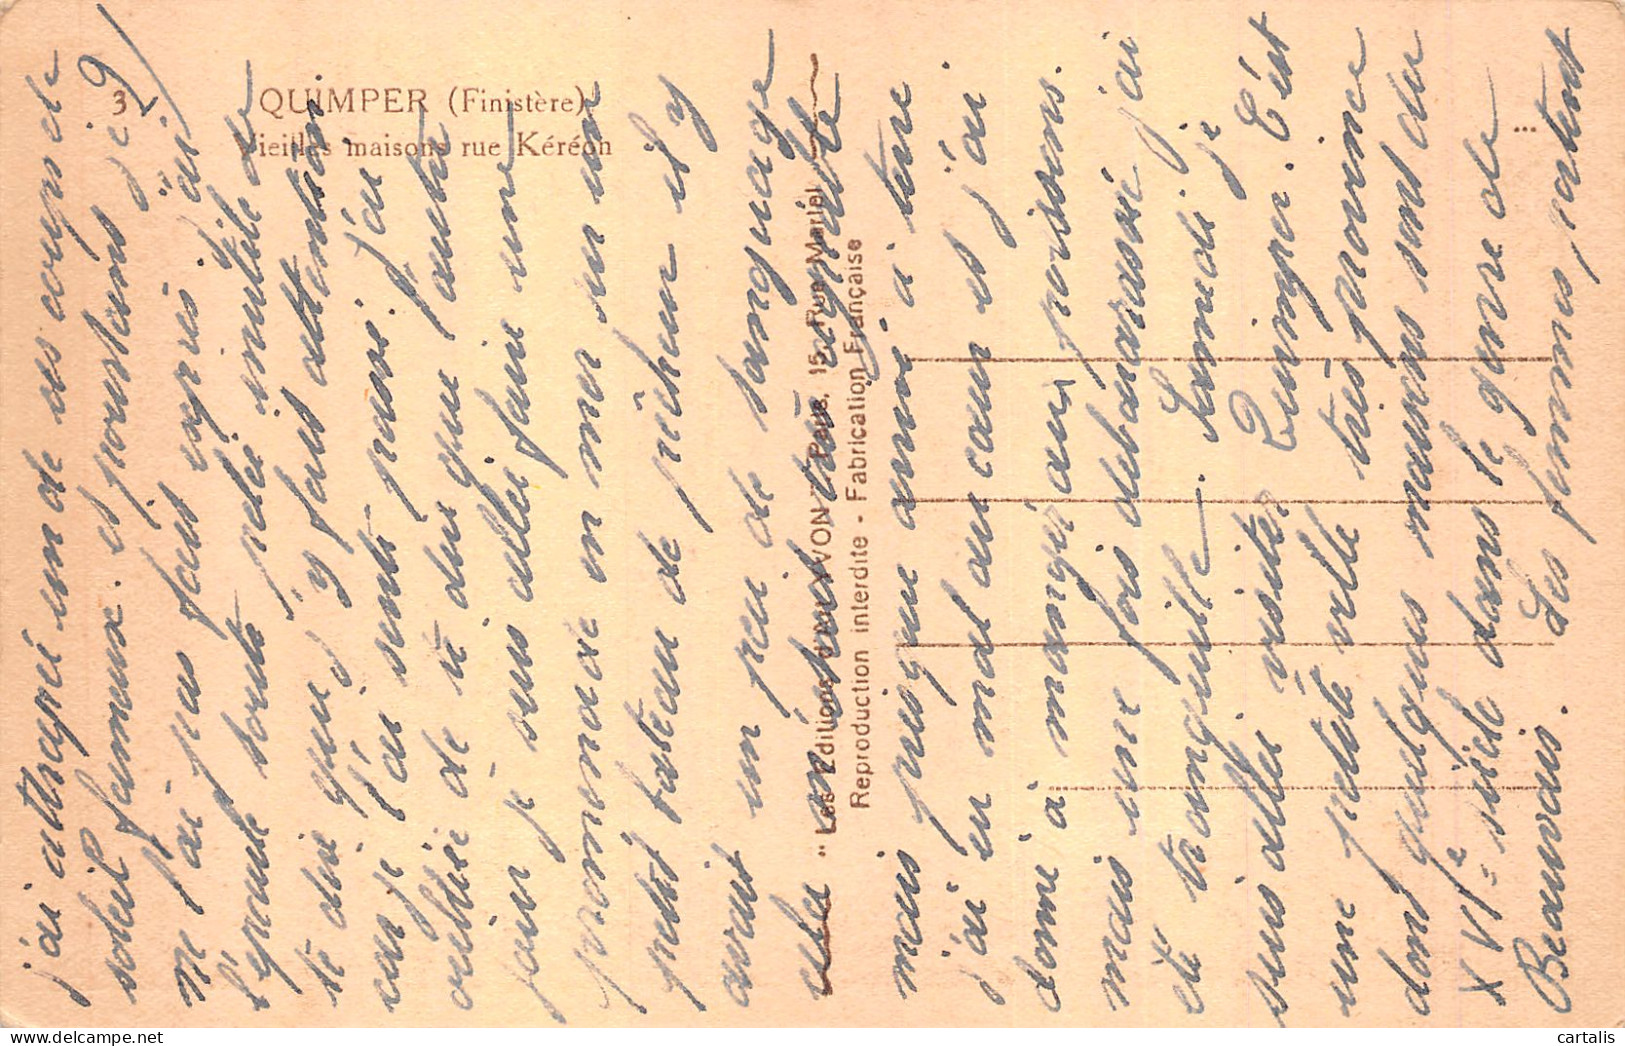 3
QUIMPER (Finistère)
Vieilles maisons rue Kéréon
"Les Editions d'Art YVON" Paris, 15, Rue Martel
Reproduction interdite - Fabrication Française
2/
j'ai attrapé un de ces coups de
soleil fameux. et pourtant je
m'ai pas fait exprès j'ai
l'épaule toute pelée inutile de
te dire que j'y fais attention
car je l'ai senti passé. j'ai
oublié de te dire que l'autre
jour je suis allée faire une
promenade en mer sur un
petit bateau de pêcheur il y
avait un peu de tanguage
cela était très agréable
mais presque arrivé à terre
j'ai eu mal au cœur et j'ai
donné à manger aux poissons.
mais une fois debarrassée j'ai
été tranquille. Samedi je
suis allée visiter Quimper. C'est
une petite ville très province
dont quelques maisons sont du
XVIe siècle dans le genre de
Beauvais. Les femmes portent